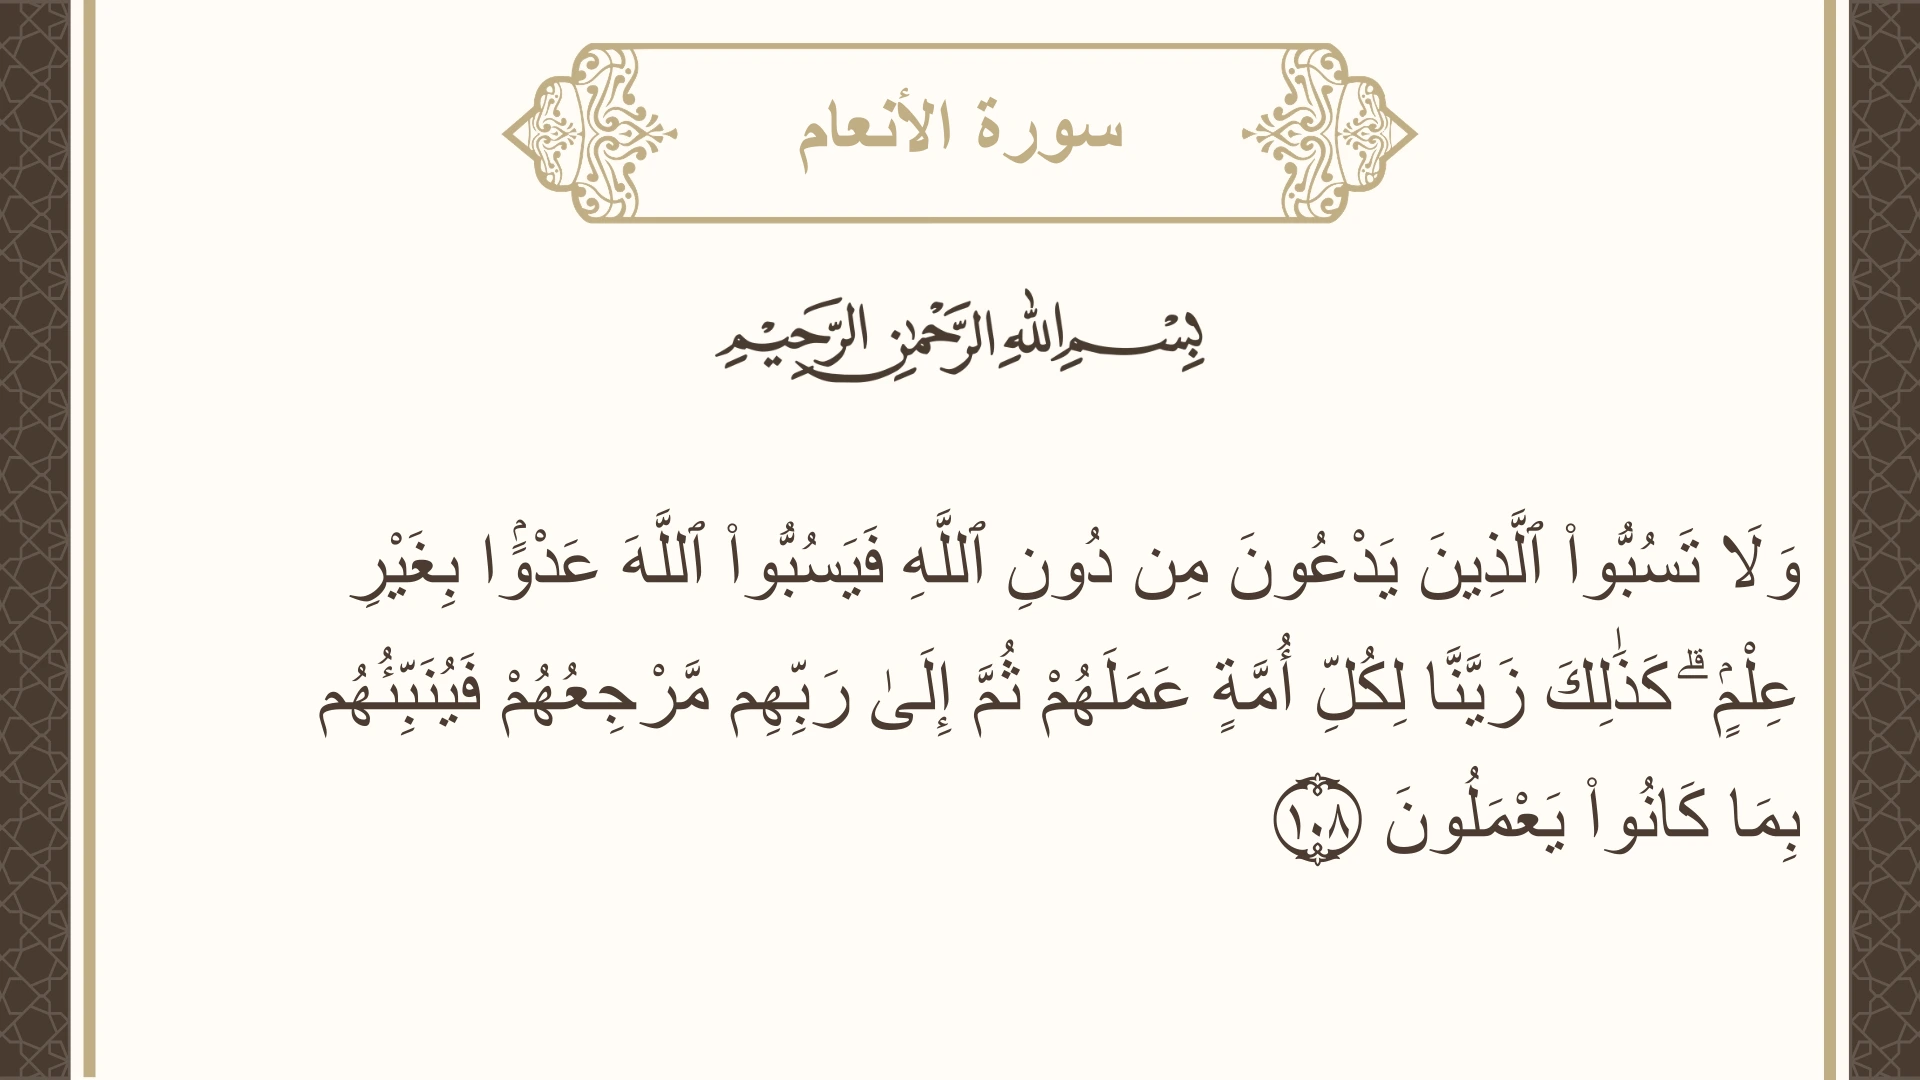 سورة الأنعام
بِسْمِ اللهِ الرَّحْمٰنِ الرَّحِيْمِ
وَلَا تَسُبُّوا۟ ٱلَّذِينَ يَدْعُونَ مِن دُونِ ٱللَّهِ فَيَسُبُّوا۟ ٱللَّهَ عَدْوًۢا بِغَيْرِ
عِلْمٍۢ ۗ كَذَٰلِكَ زَيَّنَّا لِكُلِّ أُمَّةٍ عَمَلَهُمْ ثُمَّ إِلَىٰ رَبِّهِم مَّرْجِعُهُمْ فَيُنَبِّئُهُم
بِمَا كَانُوا۟ يَعْمَلُونَ ١٠٨